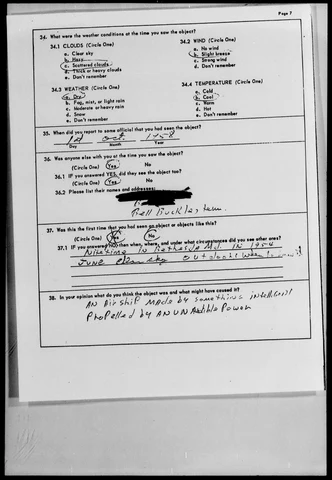 Page 7
34. What were the weather conditions at the time you saw the object?
34.1 CLOUDS (Circle One)
a. Clear sky
b. Hazy
c. Scattered clouds
d. Thick or heavy clouds
e. Don't remember
34.2 WIND (Circle One)
a. No wind
b. Slight breeze
c. Strong wind
d. Don't remember
34.3 WEATHER (Circle One)
a. Dry
b. Fog, mist, or light rain
c. Moderate or heavy rain
d. Snow
e. Don't remember
34.4 TEMPERATURE (Circle One)
a. Cold
b. Cool
c. Warm
d. Hot
e. Don't remember
35. When did you report to some official that you had seen the object?
Oct 1958
Day Month Year
36. Was anyone else with you at the time you saw the object?
(Circle One) Yes No
36.1 IF you answered YES, did they see the object too?
(Circle One) Yes No
36.2 Please list their names and addresses:
Bell Buckle, Tenn.
37. Was this the first time that you had seen an object or objects like this?
(Circle One) Yes No
37.1 IF you answered NO, then when, where, and under what circumstances did you see other ones?
Nitetime IN Bethesda Md. IN 1954
JUNE Clear sky outdoors when
38. In your opinion what do you think the object was and what might have caused it?
AN Airship MAde by something intelligent
Propelled by AN UNAudible Power